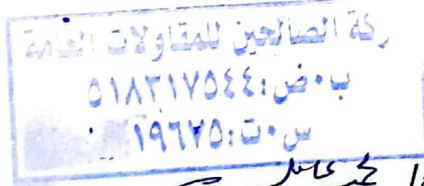 ركة الصالحين للمقاولات العامة
ب.ض:٥١٨٢١٧٥٤٤
س.ت:١٩٦٢٥
محمد عادل